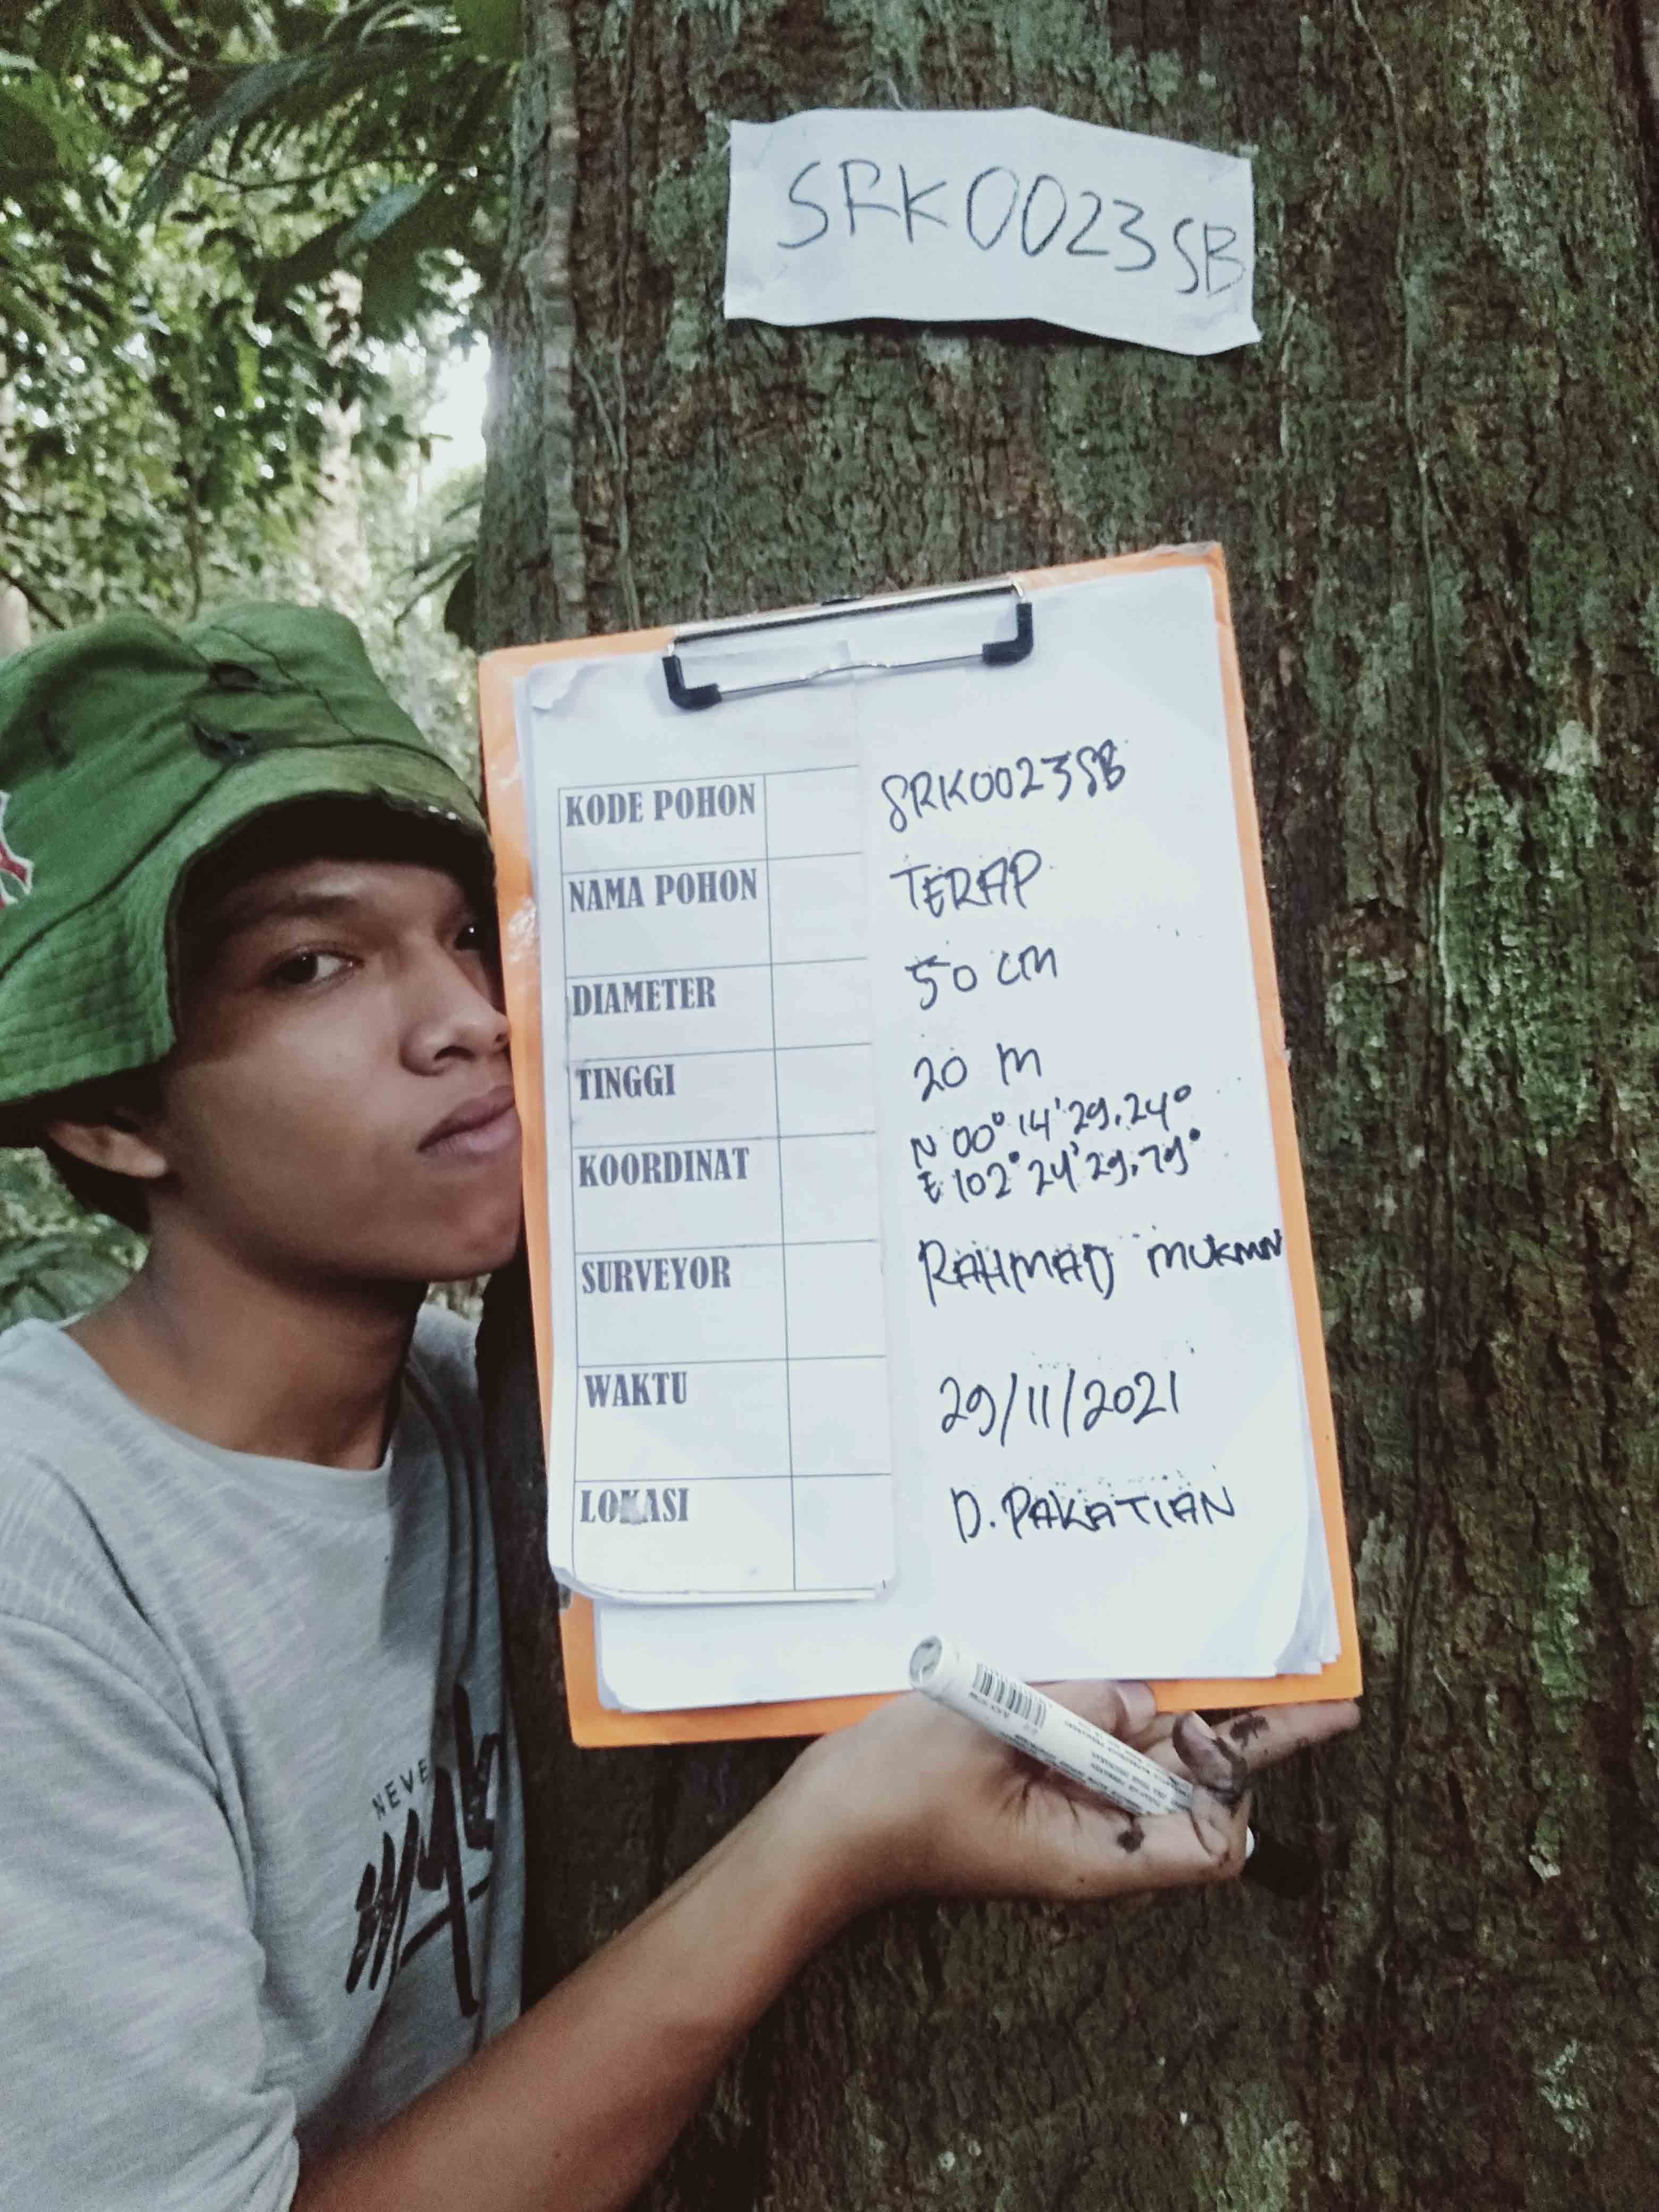 SRK0023SB
KODE POHON SRK0023SB
NAMA POHON TERAP
DIAMETER 50 cm
TINGGI 20 m
KOORDINAT N 00° 14' 29.24°
E 102° 24' 29.79°
SURVEYOR RAHMAD MUKMIN
WAKTU 29/11/2021
LOKASI D. PAKATIAN
NEVE